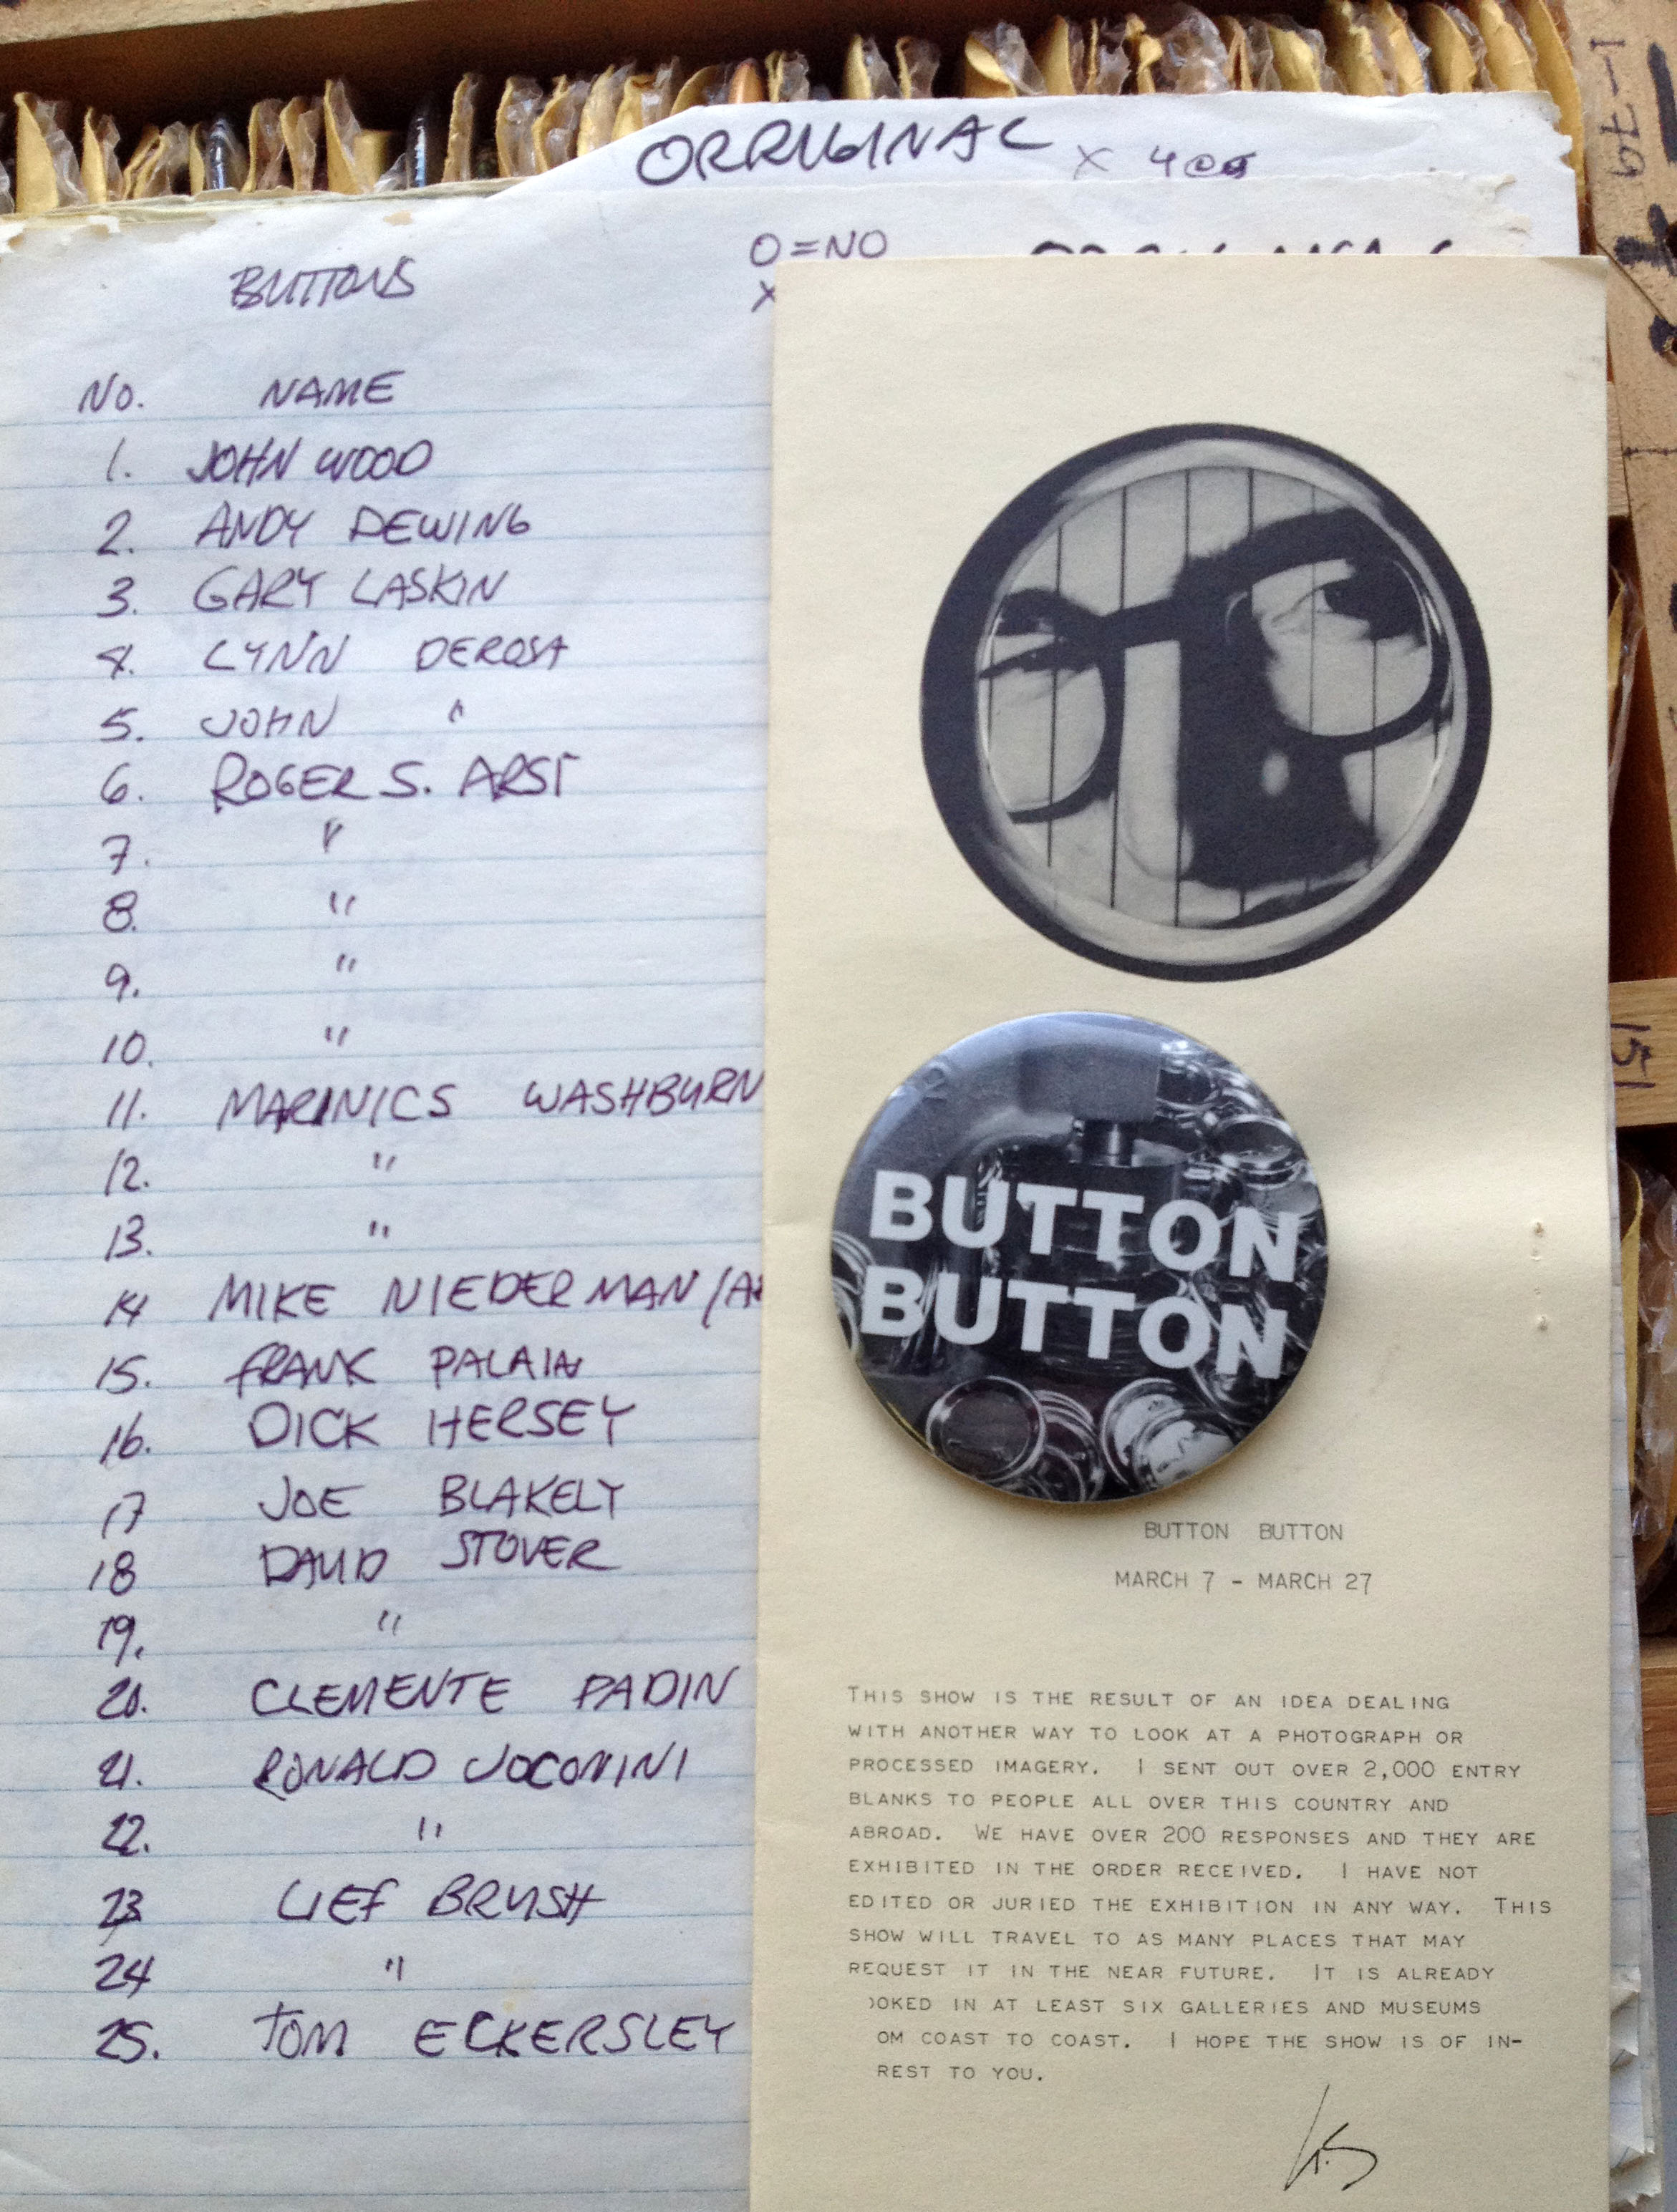 ORRIGINAL X 400
BUTTONS
O = NO
X
No. NAME
1. JOHN WOOD
2. ANDY DEWING
3. GARY LASKIN
4. LYNN DEROSA
5. JOHN "
6. ROGER S. ARST
7. "
8. "
9. "
10. "
11. MARINICS WASHBURN
12. "
13. "
14 MIKE NIEDERMAN/A
15. FRANK PALAIN
16. DICK HERSEY
17 JOE BLAKELY
18 DAVID STOVER
19. "
20. CLEMENTE PADIN
21. RONALD JOCOMINI
22. "
23 LIEF BRUSH
24 "
25. TOM ECKERSLEY
BUTTON
BUTTON
BUTTON BUTTON
MARCH 7 - MARCH 27
THIS SHOW IS THE RESULT OF AN IDEA DEALING
WITH ANOTHER WAY TO LOOK AT A PHOTOGRAPH OR
PROCESSED IMAGERY. I SENT OUT OVER 2,000 ENTRY
BLANKS TO PEOPLE ALL OVER THIS COUNTRY AND
ABROAD. WE HAVE OVER 200 RESPONSES AND THEY ARE
EXHIBITED IN THE ORDER RECEIVED. I HAVE NOT
EDITED OR JURIED THE EXHIBITION IN ANY WAY. THIS
SHOW WILL TRAVEL TO AS MANY PLACES THAT MAY
REQUEST IT IN THE NEAR FUTURE. IT IS ALREADY
OOKED IN AT LEAST SIX GALLERIES AND MUSEUMS
OM COAST TO COAST. I HOPE THE SHOW IS OF IN-
REST TO YOU.
151